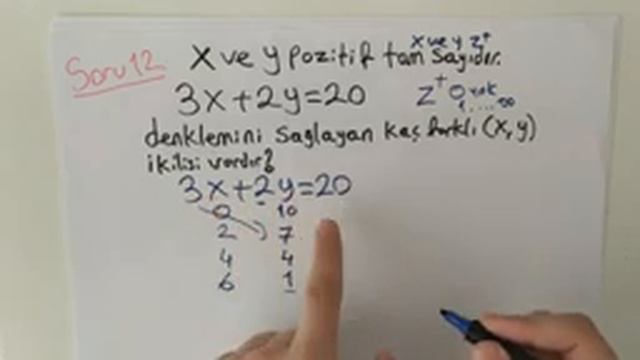 Soru 12
x ve y pozitif tam sayıdır.
x ve y Z⁺
3x+2y=20
Z⁺ 0 yok
1....∞
denklemini sağlayan kaç farklı (x,y)
ikilisi vardır?
3x+2y=20
0 10
2 7
4 4
6 1